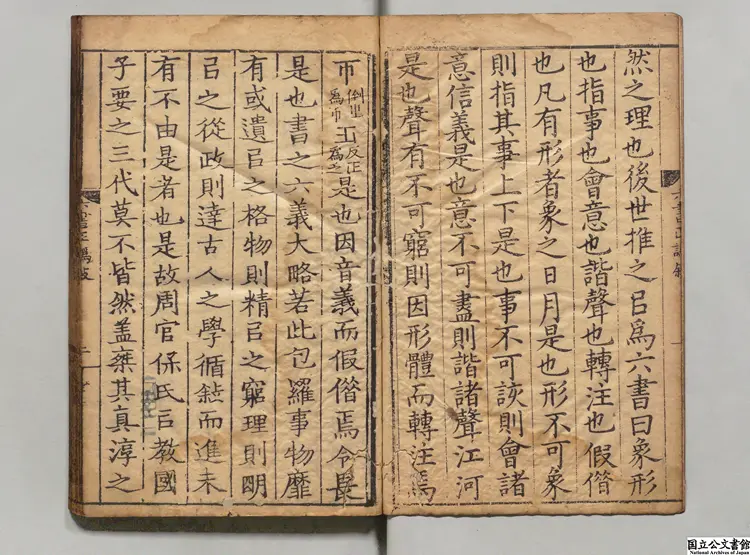 然之理也後世推之㠯爲六書曰象形
也指事也會意也諧聲也轉注也假偕
也凡有形者象之日月是也形不可象
則指其事上下是也事不可該則會諸
意信義是也意不可盡則諧諸聲江河
是也聲有不可窮則因形體而轉注焉
帀倒㞢爲帀反正爲乏是也因音義而假偕焉令長
是也書之六義大略若此包羅事物靡
有或遺㠯之格物則精㠯之窮理則明
㠯之從政則達古人之學循敘而進未
有不由是者也是故周官保氏㠯教國
子要之三代莫不皆然盖其真淳之
国立公文書館
National Archives of Japan